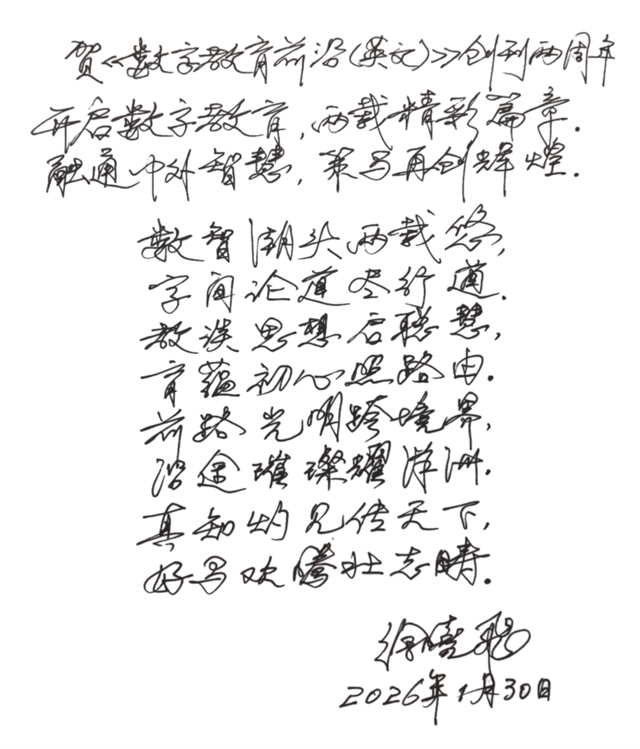 贺《数字教育前沿(英文)》创刊两周年
开启数字教育，两载精彩篇章。
融通中外智慧，策马再创辉煌。
数智潮头两载悠，
字间论道尽行遒。
教谈思想启聪慧，
育蕴初心照路由。
前路光明跨境界，
沿途璀璨耀洋洲。
真知灼见传天下，
好马欢腾壮志畴。
徐晓飞
2026年1月30日